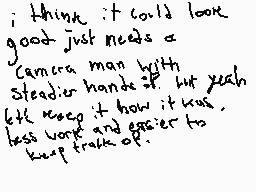 i think it could look
good just needs a
camera man with
steadier hands :P. but yeah
let keep it how it was.
less work and easier to
keep track of.